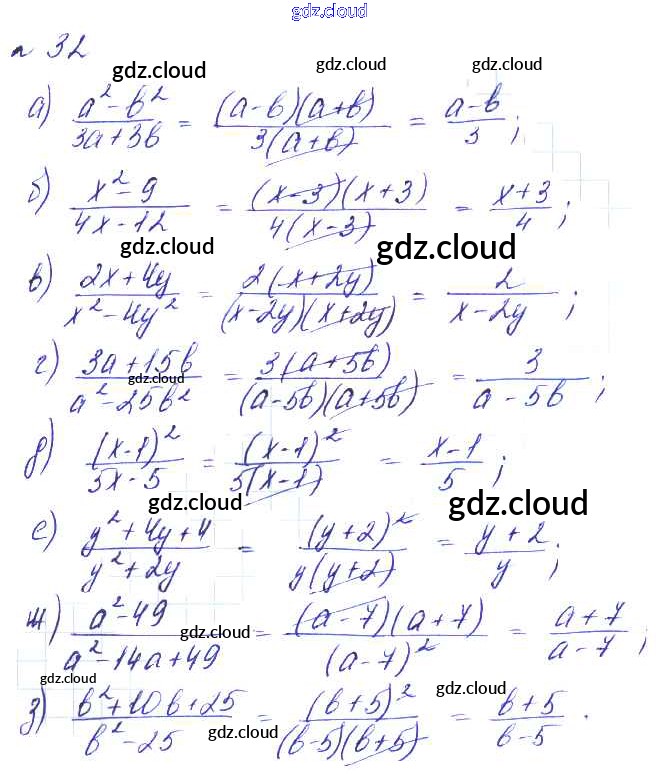 gdz.cloud
№ 32
gdz.cloud gdz.cloud
а) (a² - b²)/(3a + 3b) = ((a-b)(a+b))/(3(a+b)) = (a-b)/3 ;
gdz.cloud
б) (x² - 9)/(4x - 12) = ((x-3)(x+3))/(4(x-3)) = (x+3)/4 ;
gdz.cloud gdz.cloud
в) (2x + 4y)/(x² - 4y²) = (2(x+2y))/((x-2y)(x+2y)) = 2/(x-2y) ;
г) (3a + 15b)/(a² - 25b²) = (3(a+5b))/((a-5b)(a+5b)) = 3/(a-5b) ;
gdz.cloud
д) (x-1)²/(5x-5) = (x-1)²/(5(x-1)) = (x-1)/5 ;
gdz.cloud gdz.cloud
е) (y² + 4y + 4)/(y² + 2y) = (y+2)²/(y(y+2)) = (y+2)/y ;
ж) (a² - 49)/(a² - 14a + 49) = ((a-7)(a+7))/(a-7)² = (a+7)/(a-7) ;
gdz.cloud gdz.cloud
gdz.cloud gdz.cloud
з) (b² + 10b + 25)/(b² - 25) = (b+5)²/((b-5)(b+5)) = (b+5)/(b-5) .
gdz.cloud gdz.cloud